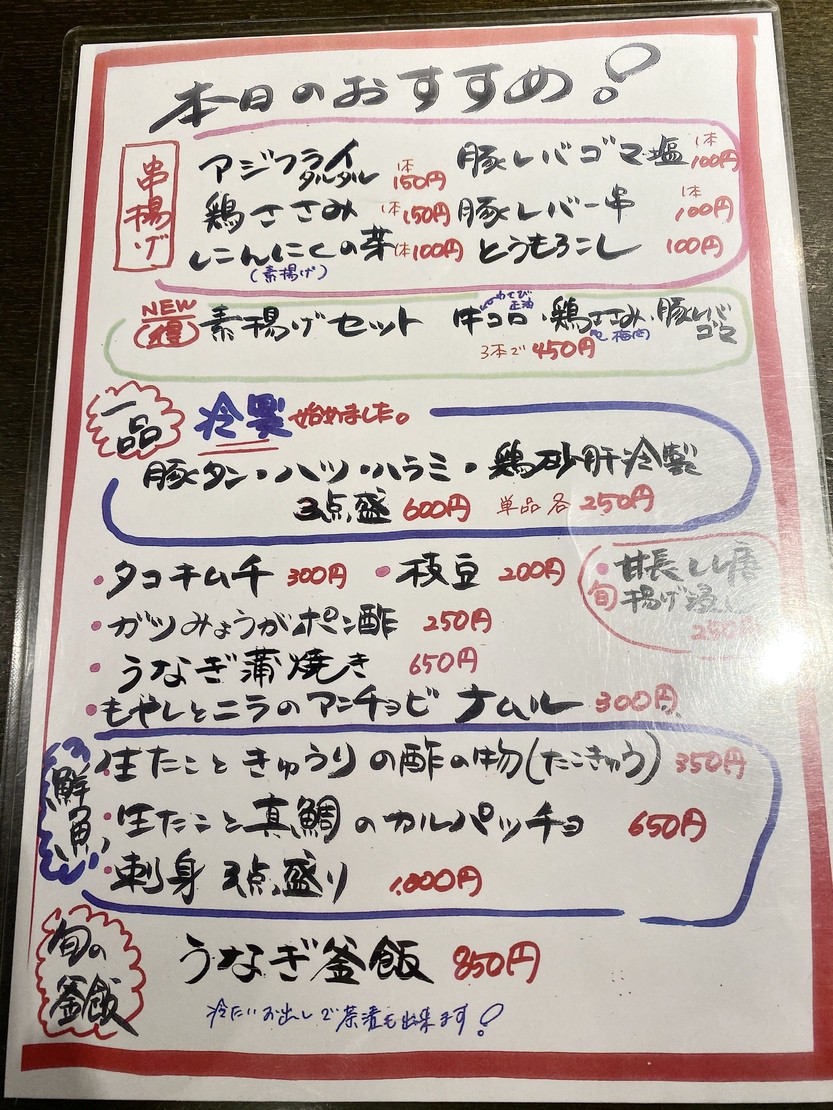 本日のおすすめ!
串揚げ
アジフライ タルタル 1本150円
豚レバゴマ塩 1本100円
鶏ささみ 1本150円
豚レバー串 1本100円
にんにくの芽 1本100円
(素揚げ)
とうもろこし 100円
NEW
(得) 素揚げセット 牛コロ・鶏ささみ・豚レバゴマ
わさび正油
梅肉
3本で450円
一品
冷製 始めました。
豚タン・ハツ・ハラミ・鶏砂肝冷製
3点盛 600円 単品各250円
・タコキムチ 300円 ・枝豆 200円
・甘長しし唐
旬 揚げ浸し
250円
・ガツみょうがポン酢 250円
・うなぎ蒲焼き 650円
・もやしとニラのアンチョビナムル 300円
鮮魚
・生たこときゅうりの酢の物(たこきゅう) 350円
・生たこと真鯛のカルパッチョ 650円
・刺身3点盛り 1,000円
旬の釜飯
うなぎ釜飯 850円
冷たいお出しで茶漬も出来ます!